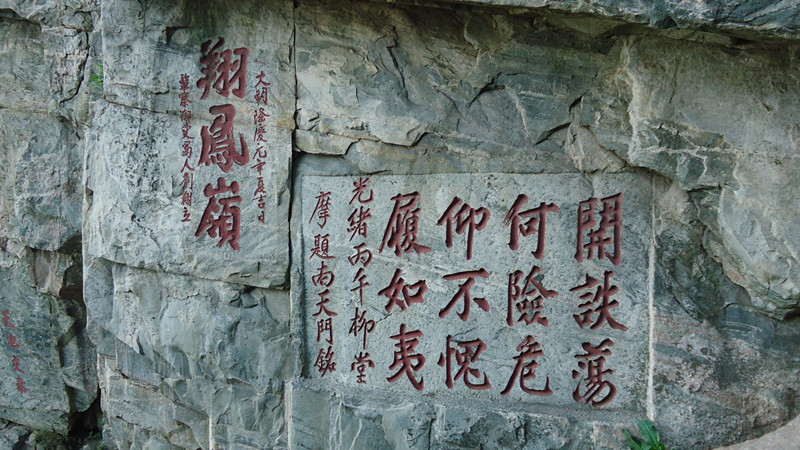 開詄蕩
何險危
仰不愧
履如夷
光緒丙午柳堂
摩題南天門銘
大明隆慶元年夏吉日
翔鳳嶺
察御史蜀人立